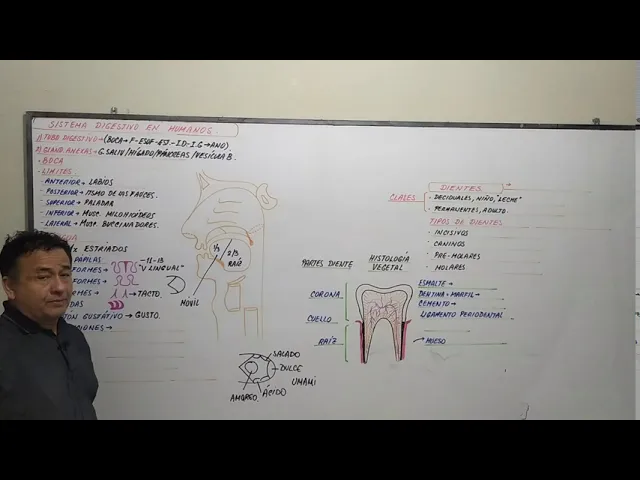 SISTEMA DIGESTIVO EN HUMANOS.
1) TUBO DIGESTIVO → (BOCA → F - ESOF - EST - I.D - I.G → ANO).
2) GLAND. ANEXAS → G. SALIV / HÍGADO / PÁNCREAS / VESÍCULA B.
• BOCA
- LÍMITES
- ANTERIOR → LABIOS
- POSTERIOR → ISTMO DE LAS FAUCES.
- SUPERIOR → PALADAR
- INFERIOR → MUSC. MILOHIOIDEOS
- LATERAL → MUSC. BUCCINADORES.
ESTRIADOS
PAPILAS
IFORMES → - 11 - 13
"V LINGUAL"
IFORMES →
→ TACTO.
GUSTATIVO → GUSTO.
CIONES →
1/3
2/3
RAÍZ
MOVIL
SALADO
DULCE
UMAMI
ÁCIDO
AMARGO.
DIENTES
CLASES
- DECIDUALES, NIÑO, "LECHE"
- PERMANENTES, ADULTO.
TIPOS DE DIENTES
- INCISIVOS
- CANINOS
- PRE-MOLARES
- MOLARES
PARTES DIENTE
HISTOLOGÍA
VEGETAL
CORONA
CUELLO
RAÍZ
ESMALTE →
DENTINA = MARFIL →
CEMENTO →
LIGAMENTO PERIODONTAL
HUESO